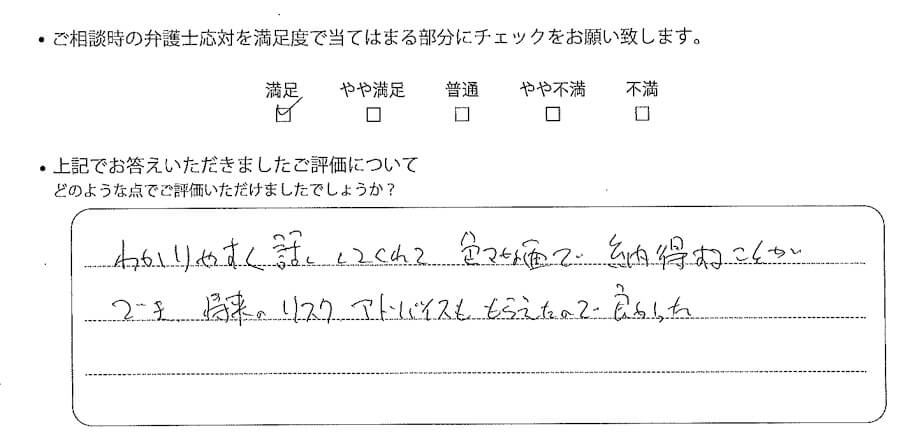 • ご相談時の弁護士応対を満足度で当てはまる部分にチェックをお願い致します。
満足 やや満足 普通 やや不満 不満
☑ □ □ □ □
• 上記でお答えいただきましたご評価について
どのような点でご評価いただけましたでしょうか？
わかりやすく話ししてくれて 全ての面で 納得することが
でき 将来の リスク アドバイスも もらえたので 良かった